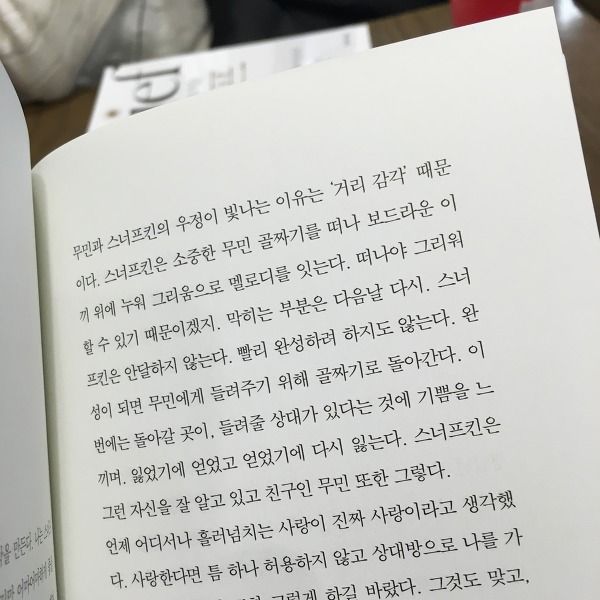 무민과 스너프킨의 우정이 빛나는 이유는 ‘거리 감각’ 때문
이다. 스너프킨은 소중한 무민 골짜기를 떠나 보드라운 이
끼 위에 누워 그리움으로 멜로디를 잇는다. 떠나야 그리워
할 수 있기 때문이겠지. 막히는 부분은 다음날 다시. 스너
프킨은 안달하지 않는다. 빨리 완성하려 하지도 않는다. 완
성이 되면 무민에게 들려주기 위해 골짜기로 돌아간다. 이
번에는 돌아갈 곳이, 들려줄 상대가 있다는 것에 기쁨을 느
끼며. 잃었기에 얻었고 얻었기에 다시 잃는다. 스너프킨은
그런 자신을 잘 알고 있고 친구인 무민 또한 그렇다.
언제 어디서나 흘러넘치는 사랑이 진짜 사랑이라고 생각했
다. 사랑한다면 틈 하나 허용하지 않고 상대방으로 나를 가
그렇게 하길 바랐다. 그것도 맞고,